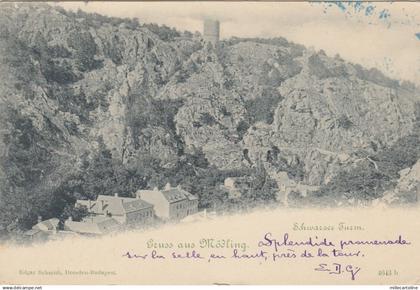 Schwarzer Turm.
Gruss aus Mödling.
Splendide promenade
sur la selle en haut, près de la tour.
Edgar Schmidt, Dresden-Budapest.
4643 b